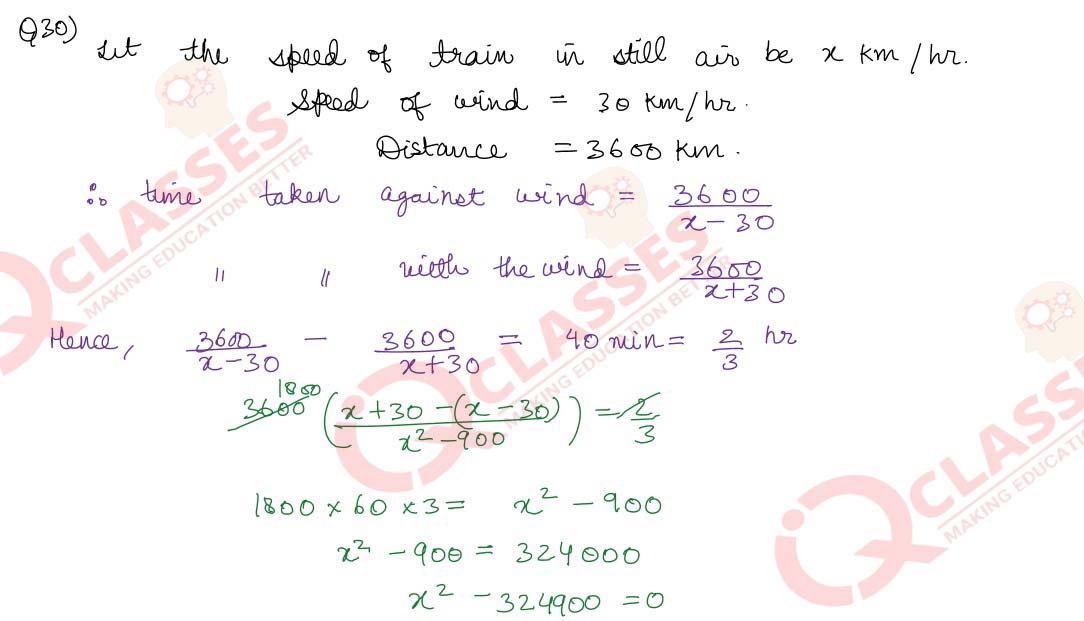 Q30) Let the speed of train in still air be x km/hr.
Speed of wind = 30 km/hr.
Distance = 3600 km.
∴ time taken against wind = 3600/(x-30)
" " with the wind = 3600/(x+30)
Hence, 3600/(x-30) - 3600/(x+30) = 40 min = 2/3 hr
1800
3600 ((x+30-(x-30))/(x²-900)) = 2/3
1800 × 60 × 3 = x² - 900
x² - 900 = 324000
x² - 324900 = 0
CLASSES
MAKING EDUCATION BETTER
CLASSES
MAKING EDUCATION BETTER
CLASSES
MAKING EDUCATION